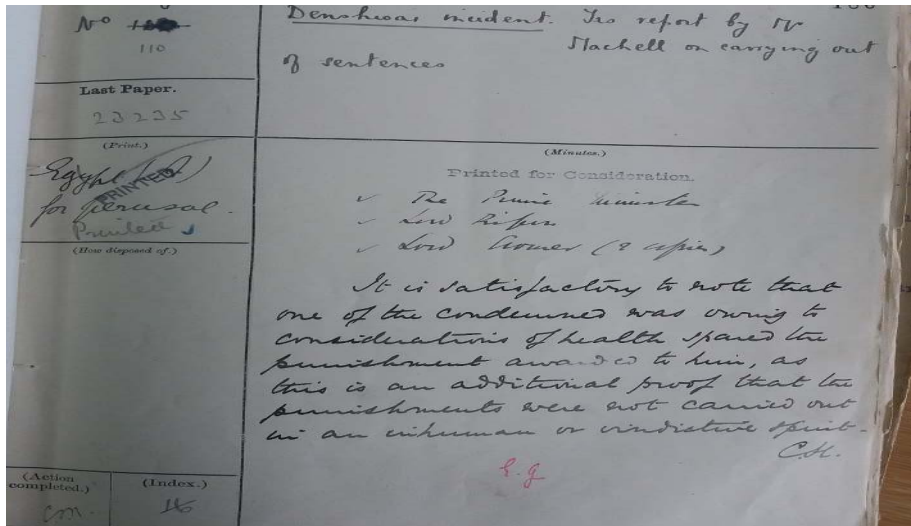 No
110
Last Paper.
23235
(Print.)
Egypt
PRINTED
for perusal.
Printed
(How disposed of.)
(Action completed.)
(Index.)
Denshwai incident. Trs report by Mr
Machell on carrying out
of sentences
(Minutes.)
Printed for Consideration.
✓ The Prime Minister
✓ Lord Ripon
✓ Lord Cromer (2 copies)
It is satisfactory to note that
one of the condemned was owing to
considerations of health spared the
punishment awarded to him, as
this is an additional proof that the
punishments were not carried out
in an inhuman or vindictive spirit.
E.g